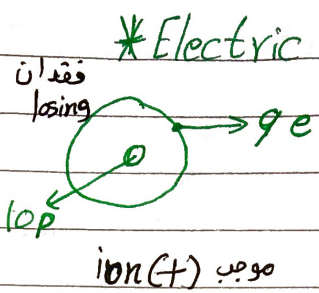 * Electric
فقدان
losing
9e
10p
ion (+) موجب